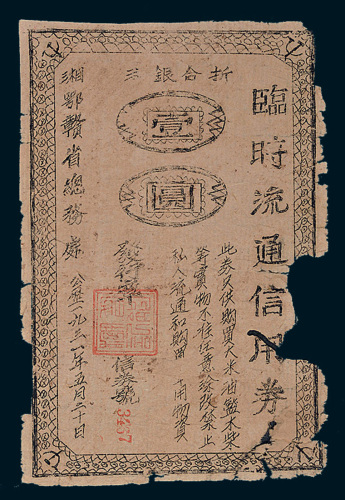 折合銀洋
壹
圓
臨時流通信用券
此券又供購買大米油鹽木柴
等實物不准任意塗改禁止
私人流通和購買 用物資
發行
信券號
3467
湘鄂贛省總務處
公歷一九三一年五月二十日